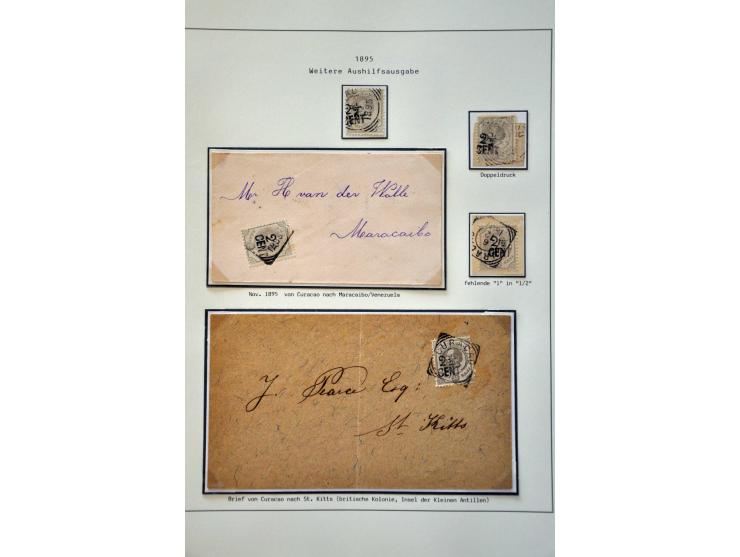 1895
Weitere Aushilfsausgabe
1895
CENT
2½
CENT
Doppeldruck
Mr. H van der Walle
Maracaibo
2½
CENT
CENT
fehlende "1" in "1/2"
Nov. 1895 von Curacao nach Maracaibo/Venezuela
CURACAO
2½
CENT
J. Pearce Esq:
St. Kitts
Brief von Curacao nach St. Kitts (britische Kolonie, Insel der Kleinen Antillen)